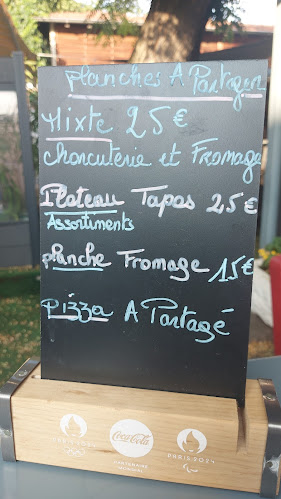 Planches A Partager
Mixte 25€
Charcuterie et Fromage
Plateau Tapas 25€
Assortiments
planche Fromage 15€
Pizza A Partagé
Coca-Cola
PARTENAIRE
MONDIAL
PARIS 2024